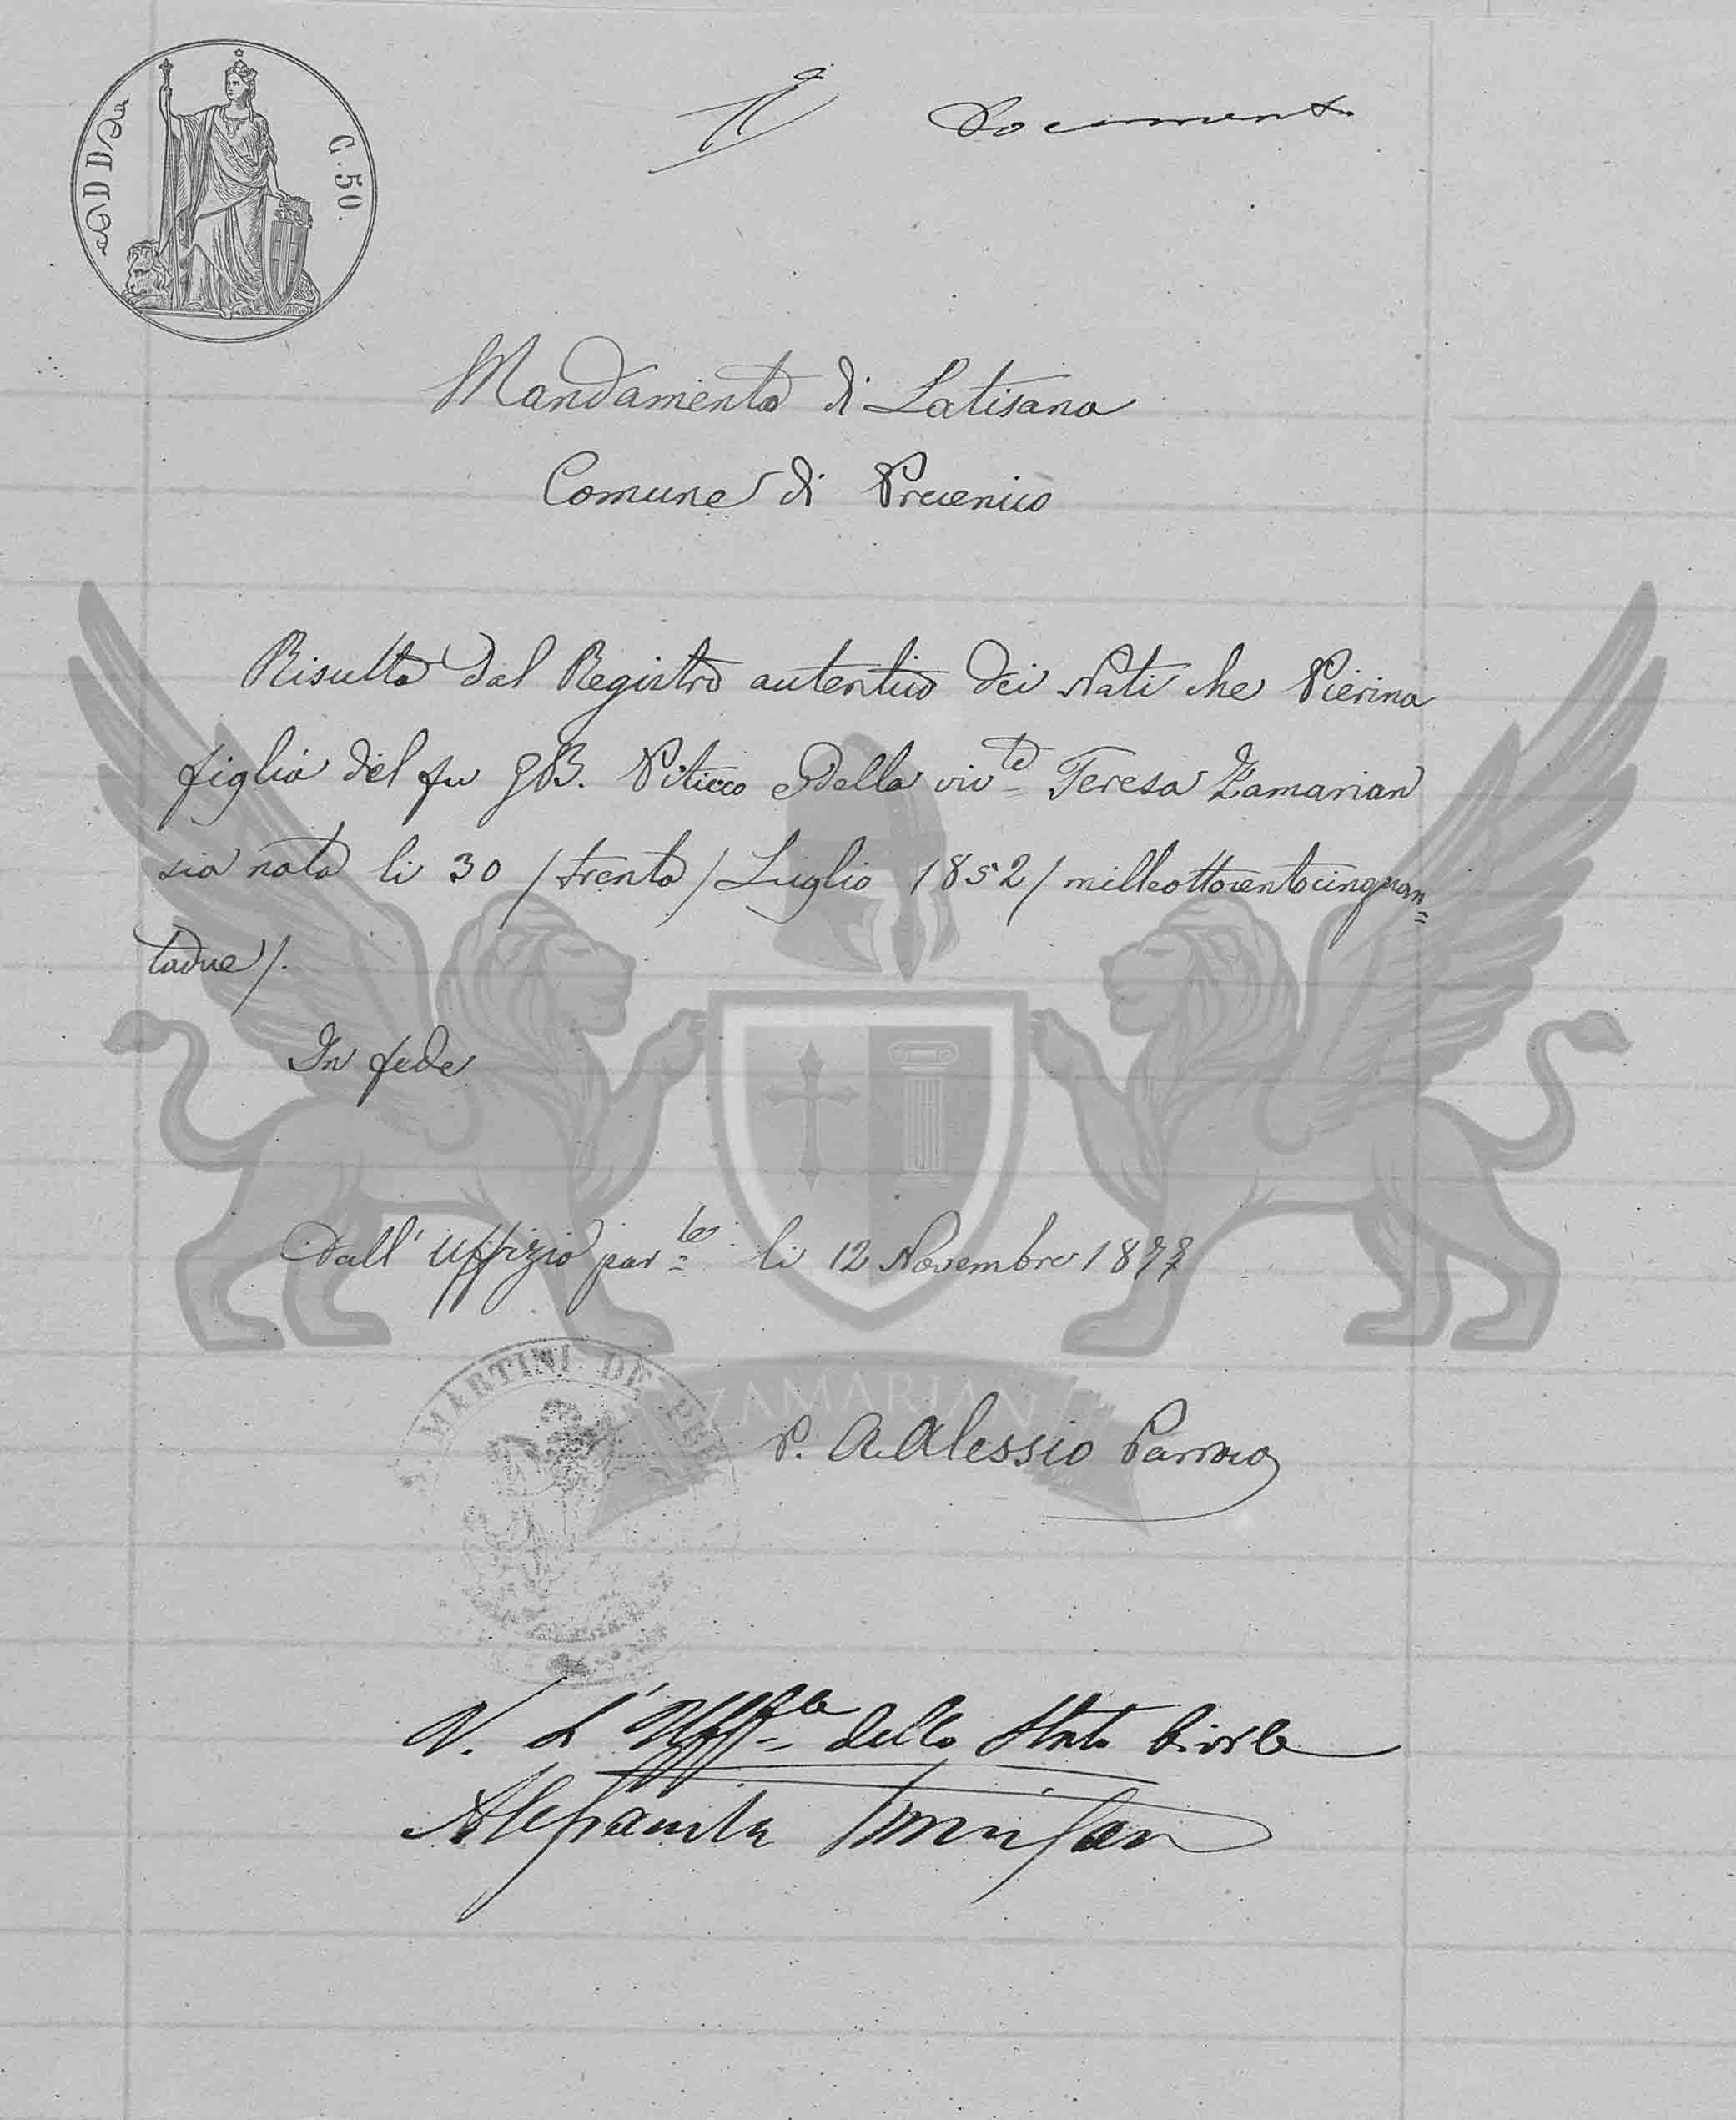 C. 50.
Document
Mandamento di Latisana
Comune di Precenico
Risulta dal Registro autentico dei Nati che Pierina
figlia del fu GB. Piticco e della viv.te Teresa Zamarian
sia nata li 30 /trenta/ Luglio 1852 / milleottocentocinquan=
tadue /.
In fede
Dall' Uffizio par.le li 12 Novembre 1877
MARTINI DE PRE
ZAMARIAN
P. A. Alessio Parroco
V. L'Uff.le dello Stato Civile